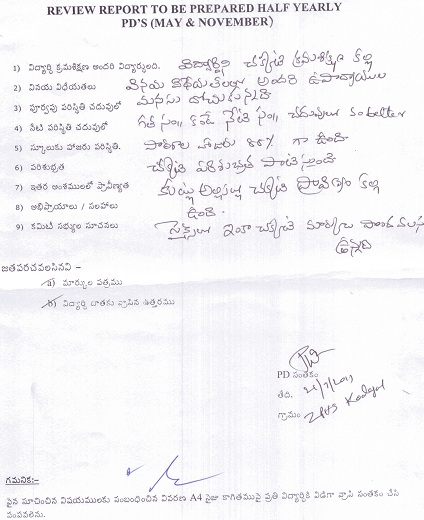 REVIEW REPORT TO BE PREPARED HALF YEARLY
PD'S (MAY & NOVEMBER)
1) విద్యార్థి క్రమశిక్షణ అందరి విద్యార్థులది. విద్యార్థిని చక్కటి క్రమశిక్షణ కల్గి
2) వినయ విధేయతలు వినయ విధేయతలల్లో అందరి ఉపాధ్యాయుల
మనసు దోచుకున్నది
3) పూర్వపు పరిస్థితి చదువులో
4) నేటి పరిస్థితి చదువులో గత సం॥ కంటే నేటి సం॥ చదువులు better
5) స్కూలుకు హాజరు పరిస్థితి. పాఠశాల హాజరు 88% గా ఉంది
6) పరిశుభ్రత చక్కటి పరిశుభ్రత పాటిస్తుంది
7) ఇతర అంశములలో ప్రావీణ్యత కుట్లు అల్లికల్లు చక్కటి ప్రావీణ్యం కల్గి
ఉంది.
8) అభిప్రాయాలు / సలహాలు
9) కమిటి సభ్యుల సూచనలు ఇంకా చక్కటి మార్కులు పొందవలసి
ఉన్నది
జతపరచవలసినవి :-
a) మార్కుల పత్రము
b) విద్యార్థి దాతకు వ్రాసిన ఉత్తరము
PD సంతకం
తేది. 21/7/2011
గ్రామం ZPHS
గమనిక:-
పైన సూచించిన విషయములకు సంబంధించిన వివరణ A4 సైజు కాగితముపై ప్రతి విద్యార్థికి విడిగా వ్రాసి సంతకం చేసి
పంపవలెను.